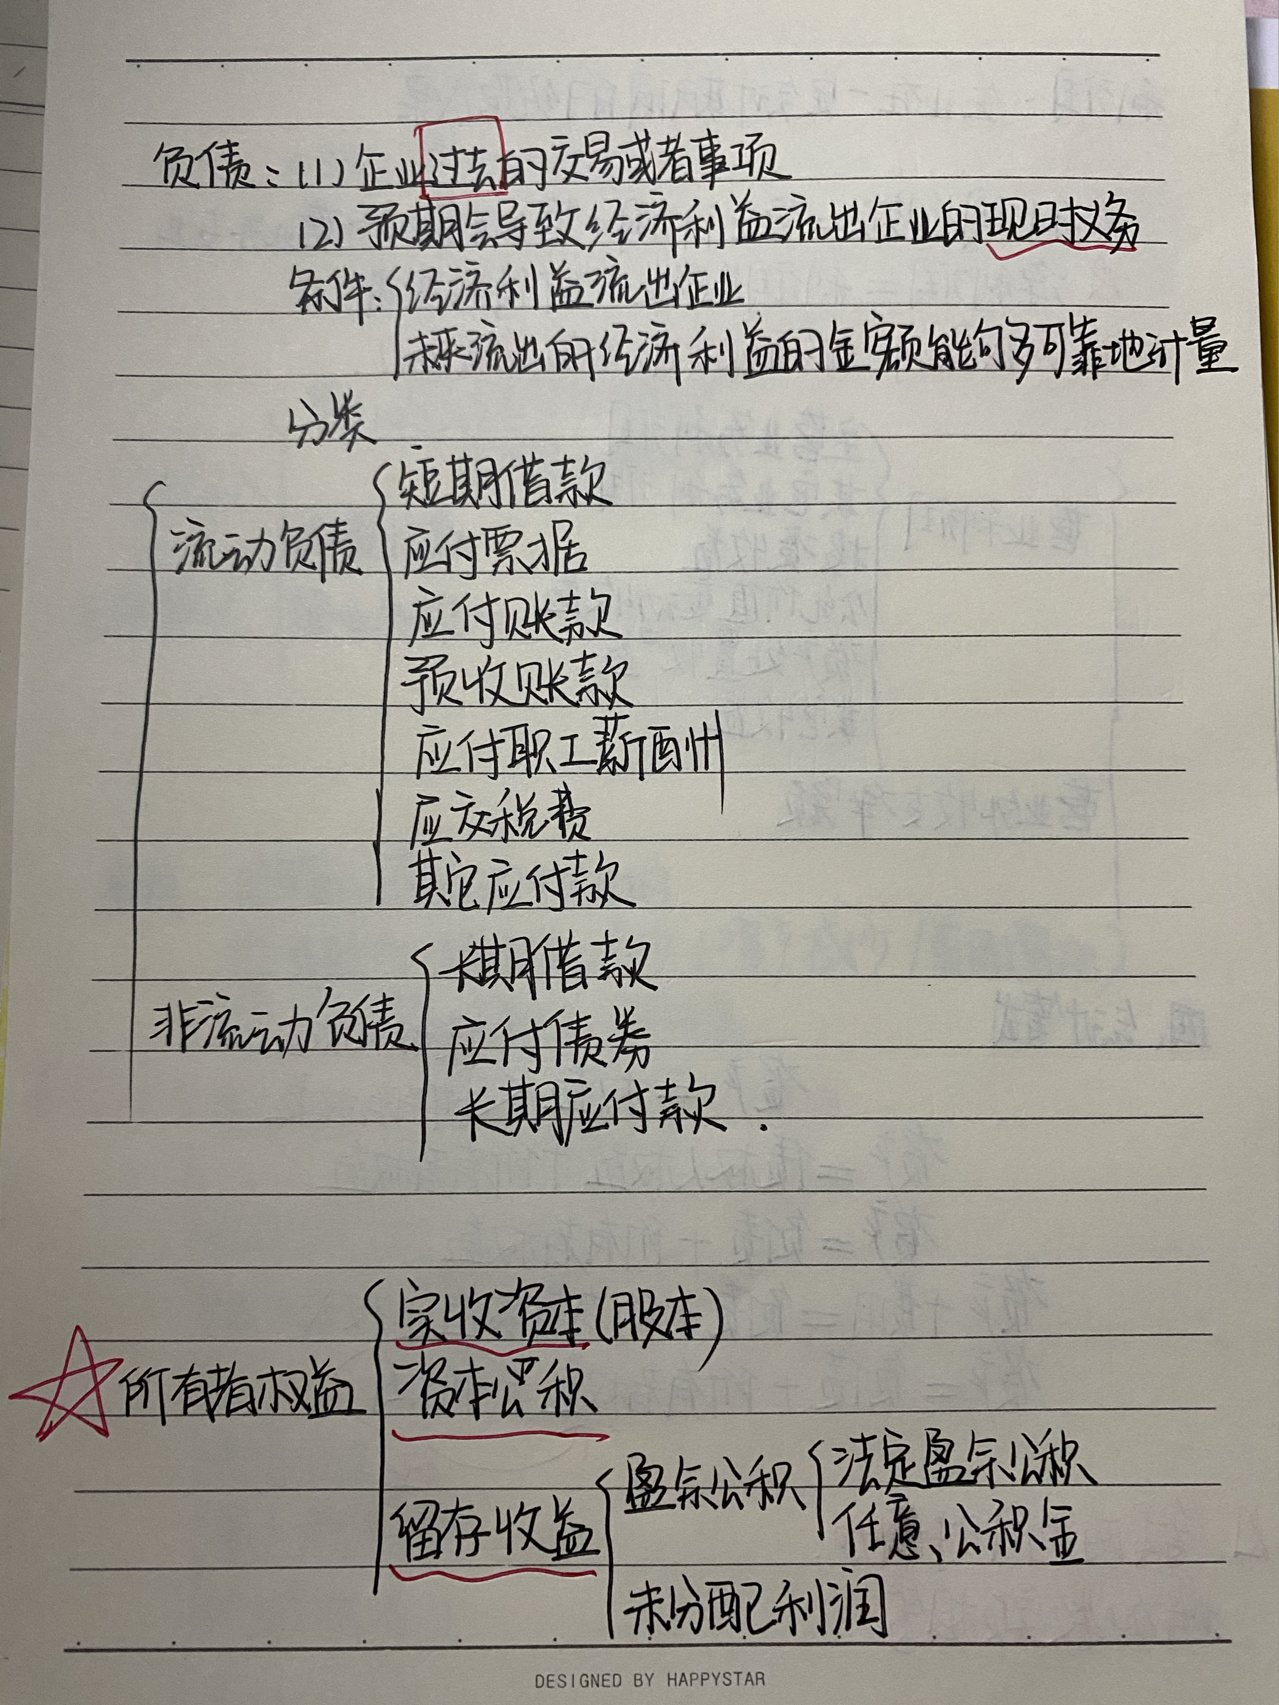 负债：(1) 企业过去的交易或者事项
(2) 预期会导致经济利益流出企业的现时义务
条件：经济利益流出企业
未来流出的经济利益的金额能够可靠地计量
分类
流动负债
短期借款
应付票据
应付账款
预收账款
应付职工薪酬
应交税费
其它应付款
非流动负债
长期借款
应付债券
长期应付款.
所有者权益
实收资本(股本)
资本公积
留存收益
盈余公积
法定盈余公积
任意公积金
未分配利润
DESIGNED BY HAPPYSTAR